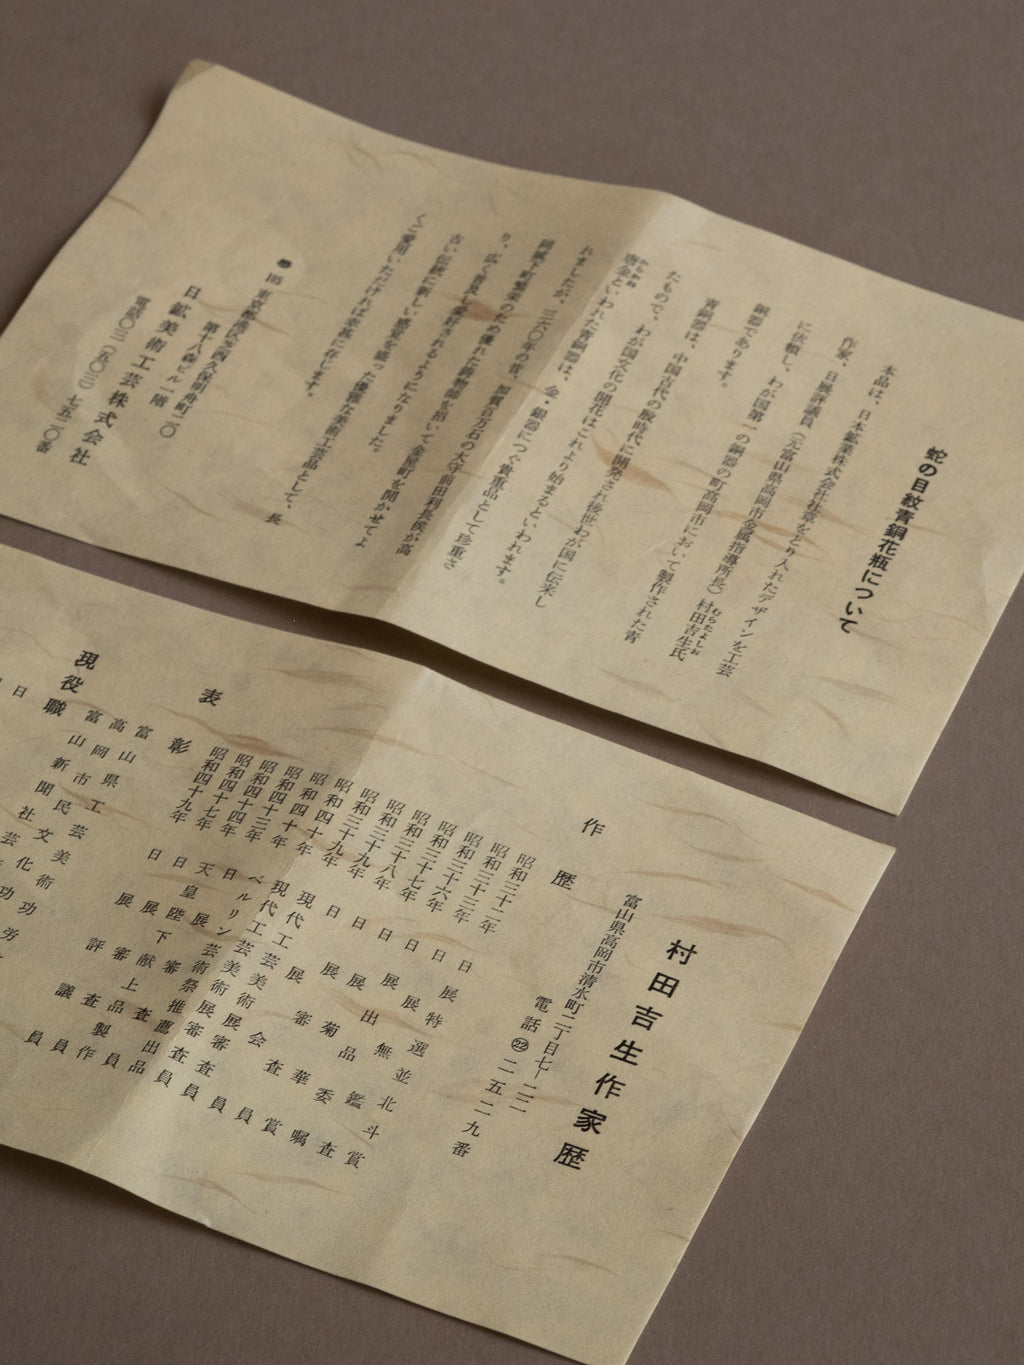 蛇の目紋青銅花瓶について
本品は、日本鉱業株式会社社章をとり入れたデザインを工芸
作家、日展評議員(元富山県高岡市金属指導所長)村田吉生氏
むらたよしお
に依頼し、わが国第一の銅器の町高岡市において製作された青
銅器であります。
青銅器は、中国古代の殷時代に開発され後世わが国に伝来し
たもので、わが国文化の開花はこれより始まるといわれます。
からかね
唐金といわれた青銅器は、金・銀器につぐ貴重品として珍重さ
れましたが、三六〇年の昔、加賀百万石の大守前田利長侯が高
岡城下町繁栄のため優れた鋳物師を招いて金屋町を開かせてよ
り、広く普及し愛好されるようになりました。
古い伝統に新しい感覚を盛った優雅な美術工芸品として、長
くご愛用いただければ幸甚に存じます。
105 東京都港区芝西久保明舟町二〇
第十八森ビル一階
日鉱美術工芸株式会社
電話〇三(五〇三)七五二〇番
村田吉生作家歴
富山県高岡市清水町二丁目七ー二二
電話㉒二五二九番
作歴
昭和三十二年 日展特選並北斗賞
昭和三十三年 日展無鑑査
昭和三十六年
昭和三十七年
昭和三十八年
昭和三十九年
昭和三十九年
昭和四十年
昭和四十年
昭和四十三年
昭和四十四年
昭和四十七年
昭和四十九年
表彰
富山県
高岡市民
富山新聞社文化功労
現役職